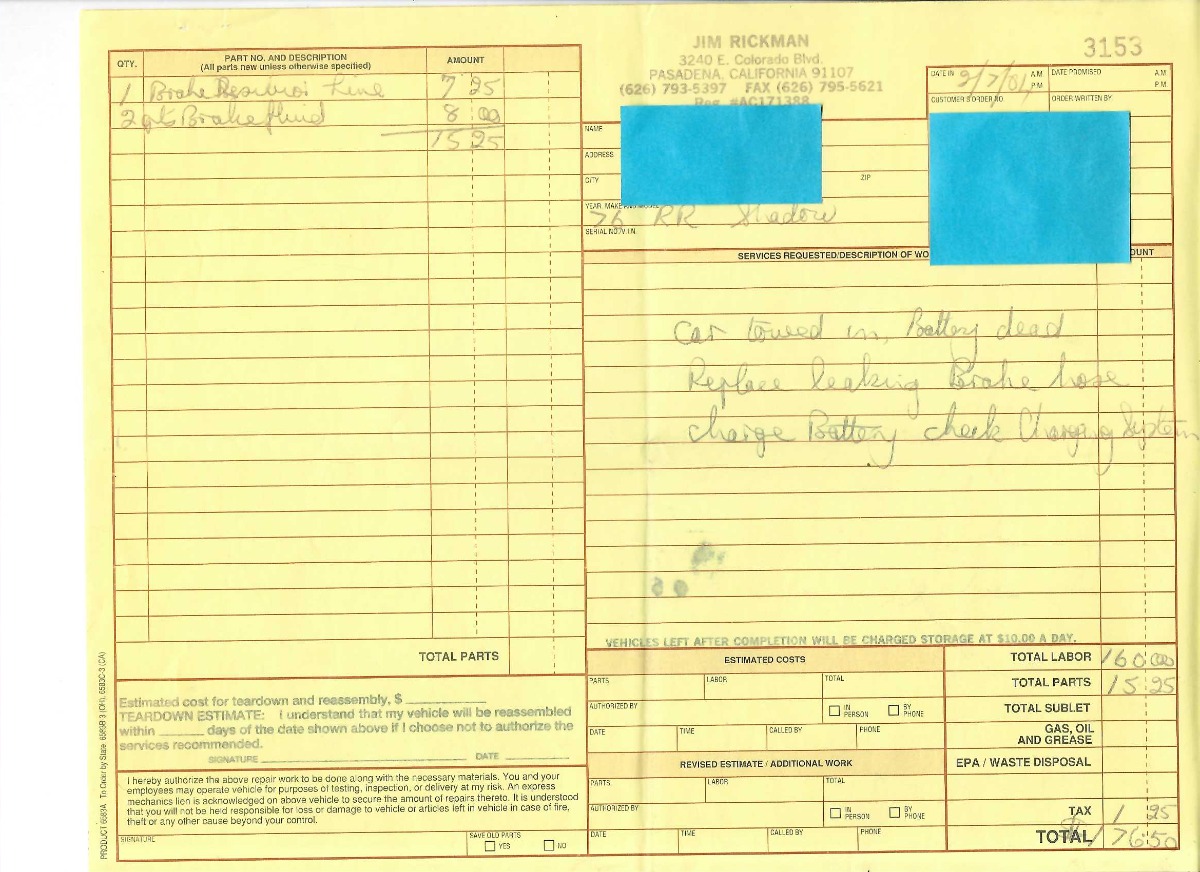 JIM RICKMAN
3240 E. Colorado Blvd.
PASADENA, CALIFORNIA 91107
(626) 793-5397 FAX (626) 795-5621
Reg. #AC171388
3153
DATE IN 2/7/01 A.M P.M
DATE PROMISED A.M P.M
CUSTOMER'S ORDER NO.
ORDER WRITTEN BY
NAME
ADDRESS
CITY
ZIP
YEAR, MAKE AND MODEL
76 RR Shadow
SERIAL NO./V.I.N.
QTY. PART NO. AND DESCRIPTION AMOUNT
(All parts new unless otherwise specified)
1 Brake Line 7 25
2 qts Brake fluid 8 00
15 25
TOTAL PARTS
SERVICES REQUESTED/DESCRIPTION OF WO
OUNT
Car towed in, Battery dead
Replace leaking Brake hose
charge Battery check Charging System
VEHICLES LEFT AFTER COMPLETION WILL BE CHARGED STORAGE AT $10.00 A DAY.
Estimated cost for teardown and reassembly, $
TEARDOWN ESTIMATE: I understand that my vehicle will be reassembled
within days of the date shown above if I choose not to authorize the
services recommended.
SIGNATURE DATE
I hereby authorize the above repair work to be done along with the necessary materials. You and your
employees may operate vehicle for purposes of testing, inspection, or delivery at my risk. An express
mechanics lien is acknowledged on above vehicle to secure the amount of repairs thereto. It is understood
that you will not be held responsible for loss or damage to vehicle or articles left in vehicle in case of fire,
theft or any other cause beyond your control.
SIGNATURE
SAVE OLD PARTS
YES NO
ESTIMATED COSTS
PARTS LABOR TOTAL
AUTHORIZED BY IN PERSON BY PHONE
DATE TIME CALLED BY PHONE
REVISED ESTIMATE / ADDITIONAL WORK
PARTS LABOR TOTAL
AUTHORIZED BY IN PERSON BY PHONE
DATE TIME CALLED BY PHONE
TOTAL LABOR 160 00
TOTAL PARTS 15 25
TOTAL SUBLET
GAS, OIL
AND GREASE
EPA / WASTE DISPOSAL
TAX 1 25
TOTAL $176 50
PRODUCT 6583A To Order by State, 6583B-3 (OH), 6583C-3 (CA)